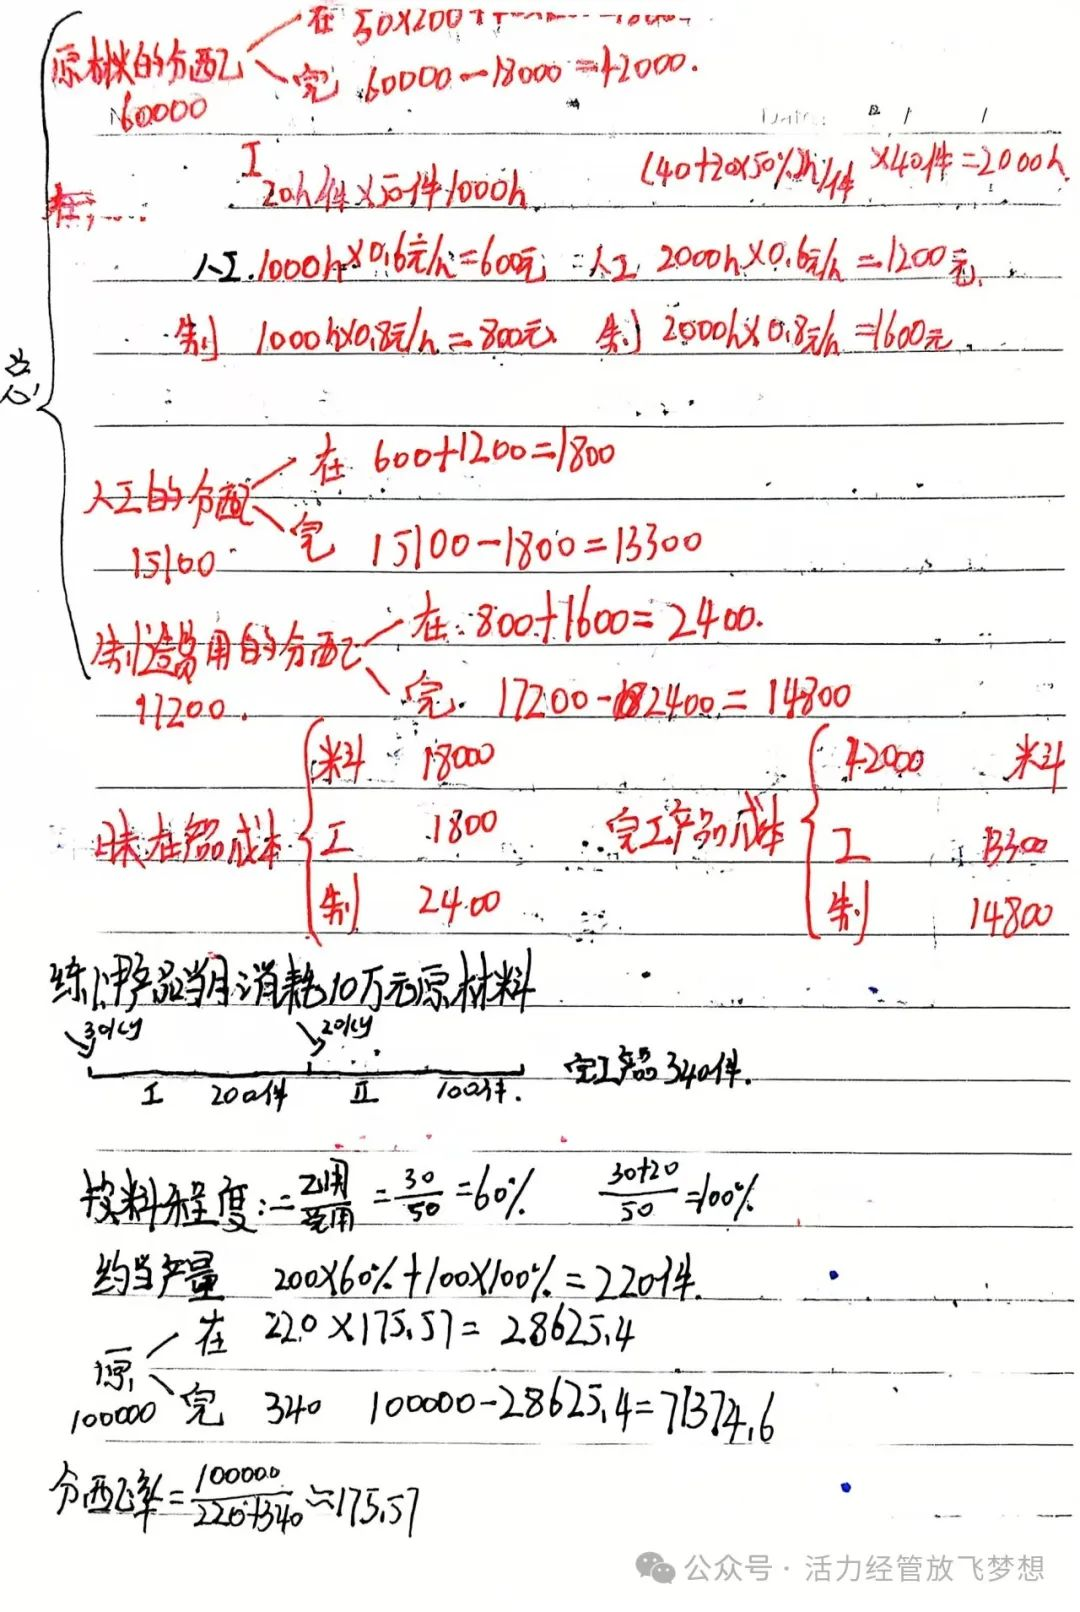 在 50×200+
原材料的分配
完 60000-18000=42000.
60000
I
20h/件×50件 1000h
(40+20×50%)h/件 ×40件=2000h
在,……
人工.1000h×0.6元/h=600元 人工 2000h×0.6元/h=1200元.
制 1000h×0.8元/h=800元. 制 2000h×0.8元/h=1600元.
在 600+1200=1800
人工的分配
完 15100-1800=13300
15100
在 800+1600=2400.
制造费用的分配
完 17200-2400=14800
17200.
料 18000
42000 料
月末在产品成本
工 1800
完工产品成本
工 13300
制 2400
制 14800
练:甲产品当月消耗10万元原材料
30kg 20kg
I 200件 II 100件. 完工产品340件.
投料程度:=已用/总用=30/50=60% 30+20/50=100%
约当产量 200×60%+100×100%=220件.
在 220×175.57=28625.4
原
100000 完 340 100000-28625.4=71374.6
分配率=100000/220+340≈175.57
公众号·活力经管放飞梦想